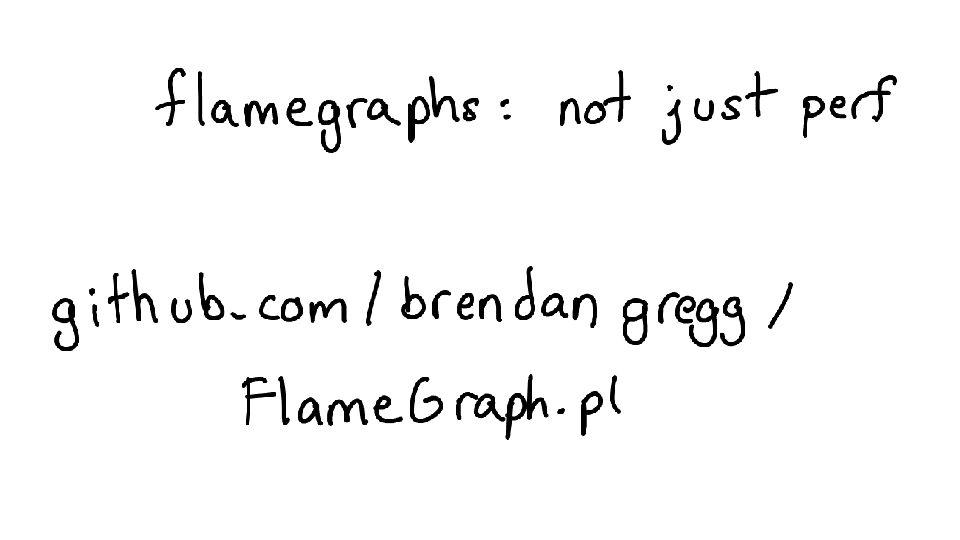 flamegraphs: not just perf
github.com/brendangregg/
FlameGraph.pl